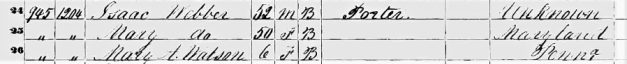 24 945 1204 Isaac Webber 52 M B Porter. Unknown
25 " " Mary do 50 F B Maryland
26 " " Mary A. Watson 6 F B Penna